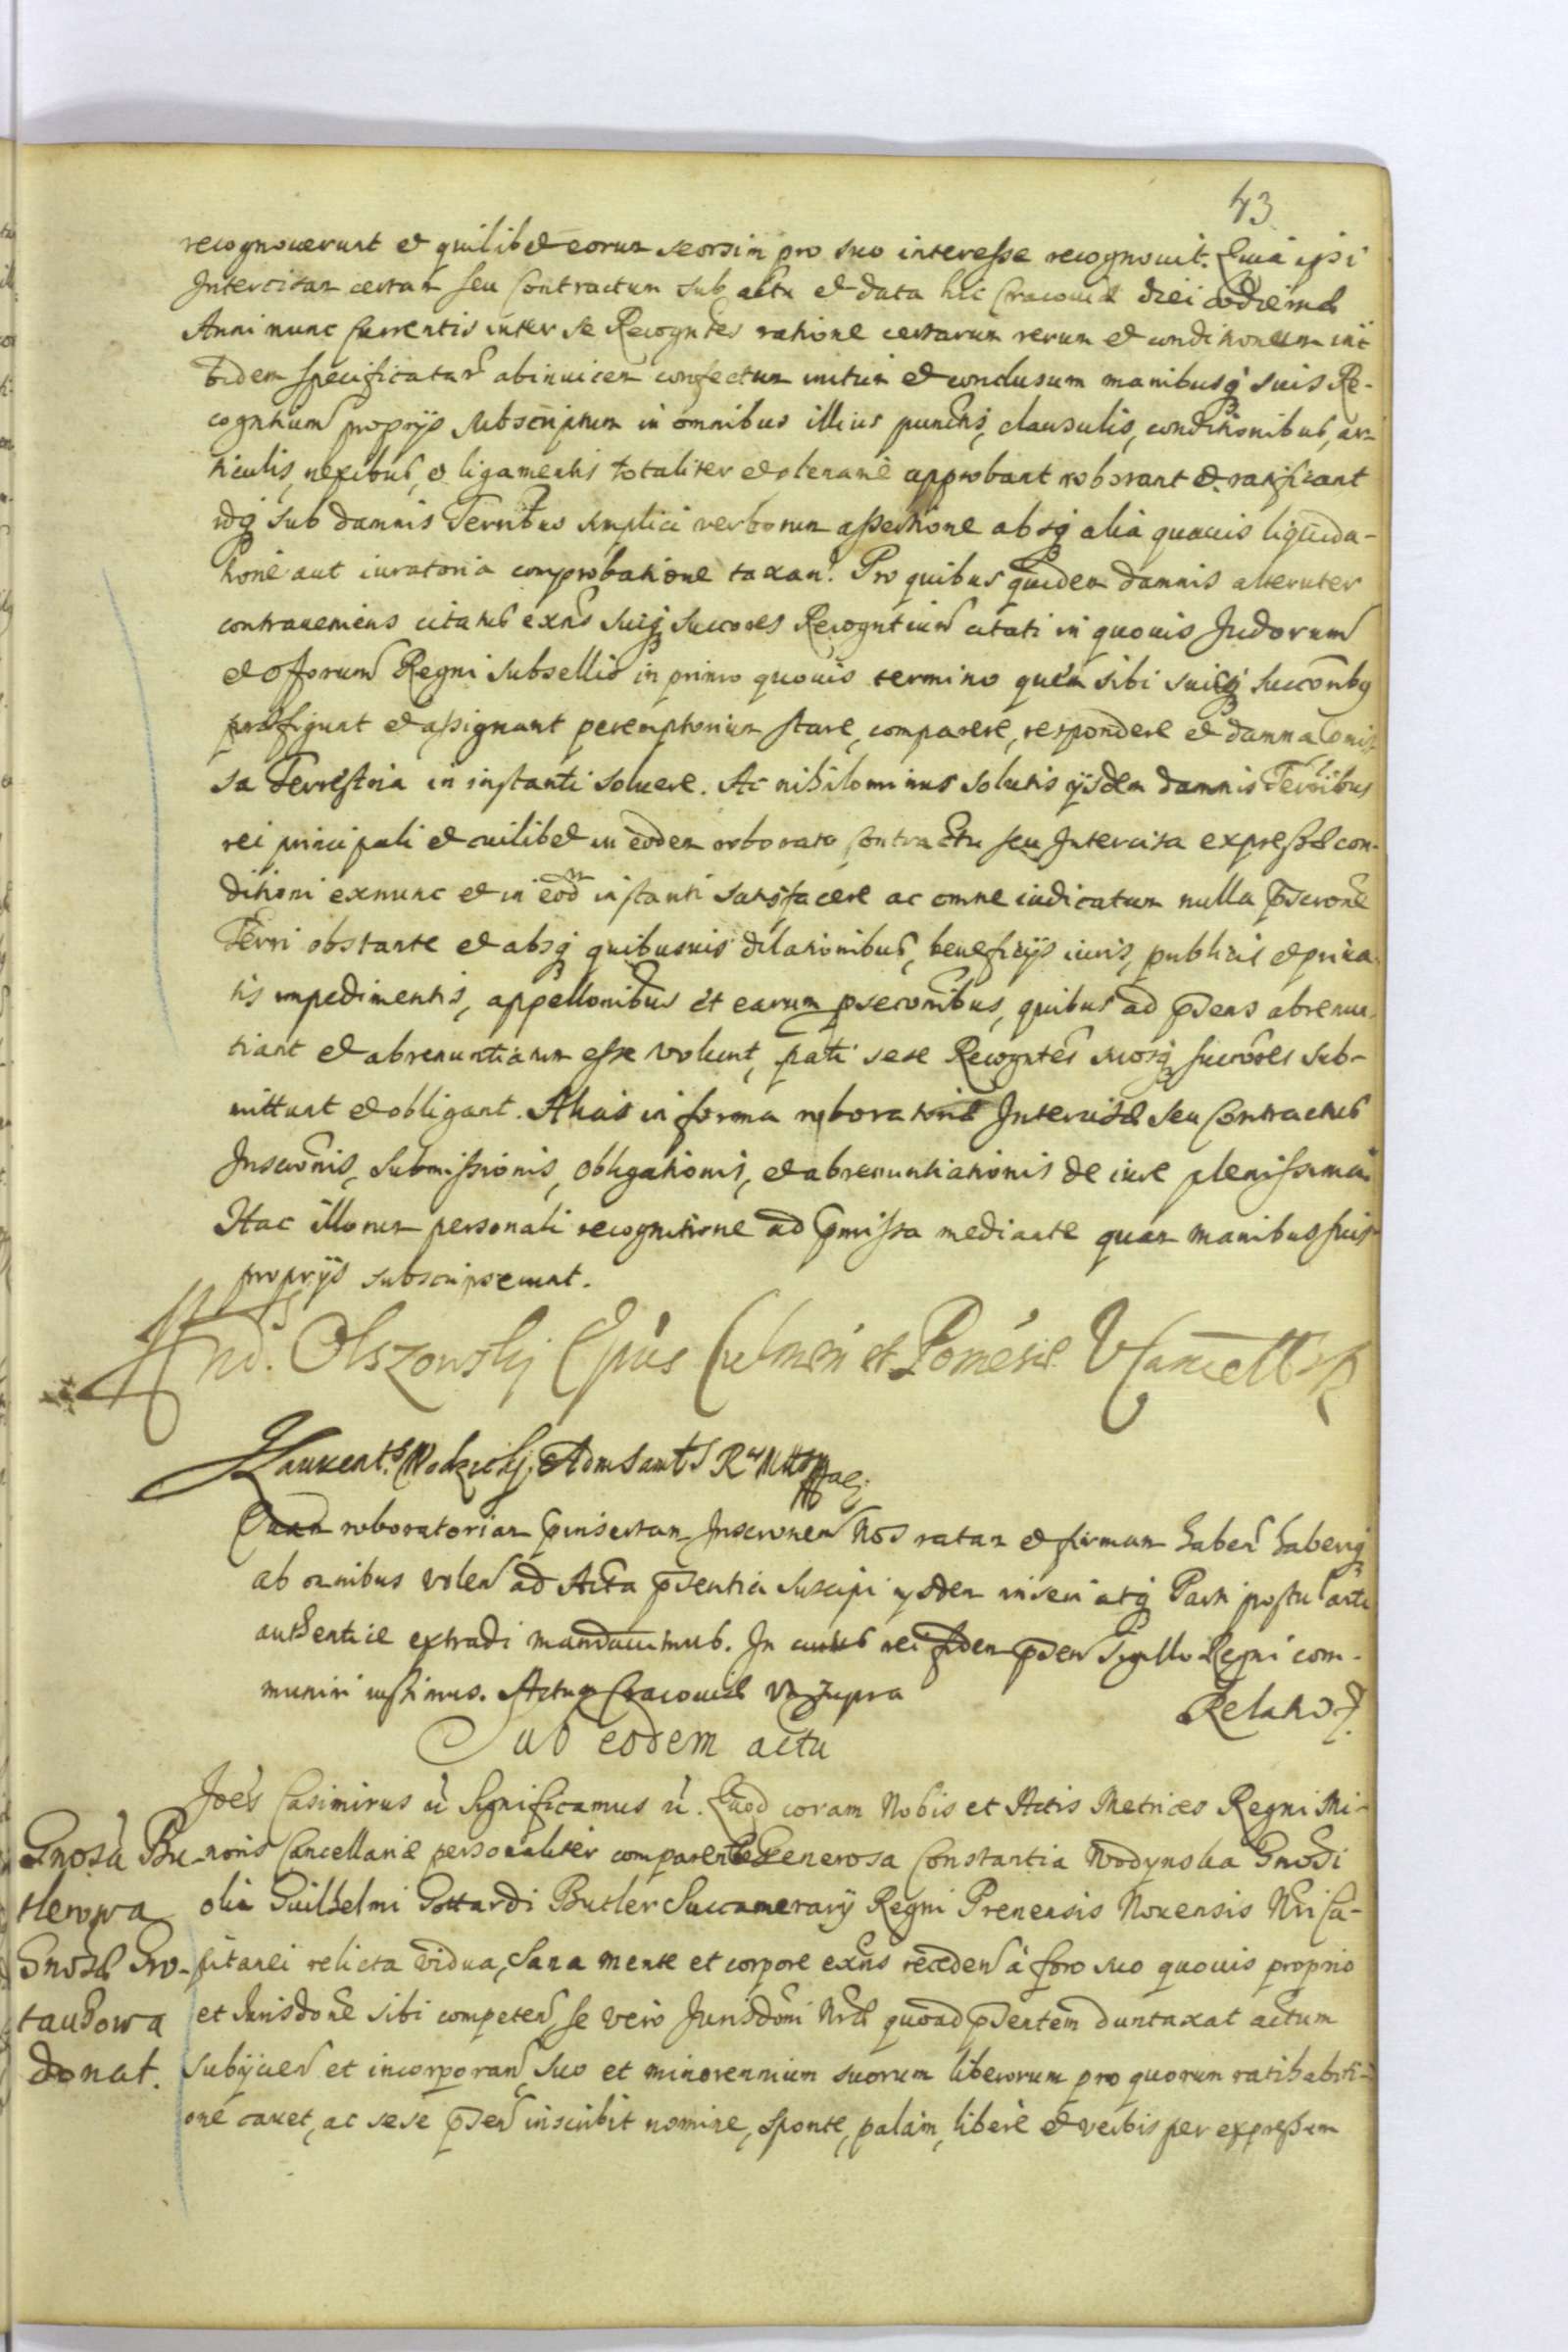 43
recognouerunt et quilibet eorum seorsim pro suo interesse recognouit. Quia ipsi
Intercisam certam seu Contractum sub actu et data hic Cracouiæ diei hodiernæ
Anni nunc currentis inter se Recogntes ratione certarum rerum et conditionum
ibidem specificatar abinuicem confectum initum et conclusum manibusq suis Re-
cogntium proprijs subscriptum in omnibus illius punctis, clausulis, conditionibus, ar-
ticulis, nexibus, et ligamentis totaliter et plenarie approbant roborant et ratificant
idq sub damnis Terrribus simplici verborum assertione absq alia quauis liquida-
tione aut iuratoria comprobatione taxan. Pro quibus quidem damnis alteruter
contraueniens citatus exns suiq succores Recogntium citati in quouis Judiorum
et Offorum Regni subsellio in primo quouis termino quem sibi suisq succoribq
præfigunt et assignant peremptorium stare, comparere, respondere et damna
sa Terrestria in instanti soluere. Ac nihilominus solutis ijsdem damnis Terribus
rei principali et cuilibet in eodem roborato Contractu seu Intercisa expressæ con-
ditioni exnunc et in eod instanti satisfacere ac omne iudicatum nulla pscrone
Terri obstante et absq quibusuis dilationibus, beneficijs iuris, publicis et priua-
tis impedimentis, appellonibus et earum pseconibus, quibus ad psens abrenun-
tiant et abrenuntiatum esse volunt, pati sese Recogntes suosq succores sub-
mittunt et obligant. Alias in forma roboratoriæ Intercisæ seu Contractus
Inscronis, submissionis, obligationis, et abrenuntiationis de iure plenissima
Hac illorum personali recognitione ad pmissa mediante quam manibus suis
proprijs subscripserunt.
And. Olszowskj Epûs Culmen et Pomeræ VCancell R
Laurents Wodzickj
Quam roboratoriam pinsertam Inscronem Nos ratam et firmam haben haberiq
ab omnibus volen ad Acta psentia suscipi ijsdem inseri atq Parti postulanti
authentice extradi mandauimus. In cuius rei fidem psen Sigillo Regni com-
muniri iussimus. Actum Cracouiæ Ut supra
Relatio
Sub eodem actu
Joes Casimirus ɶ Significamus ɶ. Quod coram Nobis et Actis Metrices Regni Mi-
Gnosa But-
noris Cancellariæ personaliter comparens Generosa Constantia Wodynska Gnosi
tlerowa
olim Guilhelmi Gottardi Butler Succamerarij Regni Prenensis Nouensis Nri Ca-
Gnosæ Gro-
pitanei relicta vidua, sana mente et corpore exns receden à foro suo quouis proprio
tauhowa
et Jurisdone sibi competen, se vero Jurisdoni Nræ quoad psentem duntaxat actum
donat.
subijcien et incorporan, suo et minorennium suorum liberorum pro quorum ratihabiti-
one cauet, ac sese psen inscribit nomine, sponte, palam, libere et verbis per expressum